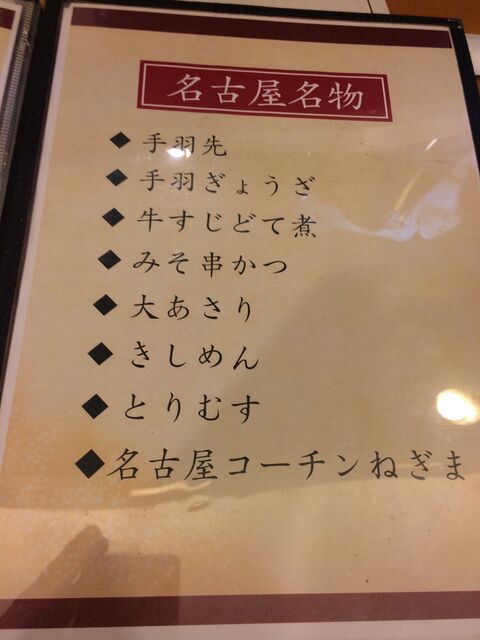 名古屋名物
◆ 手羽先
◆ 手羽ぎょうざ
◆ 牛すじどて煮
◆ みそ串かつ
◆ 大あさり
◆ きしめん
◆ とりむす
◆ 名古屋コーチンねぎま